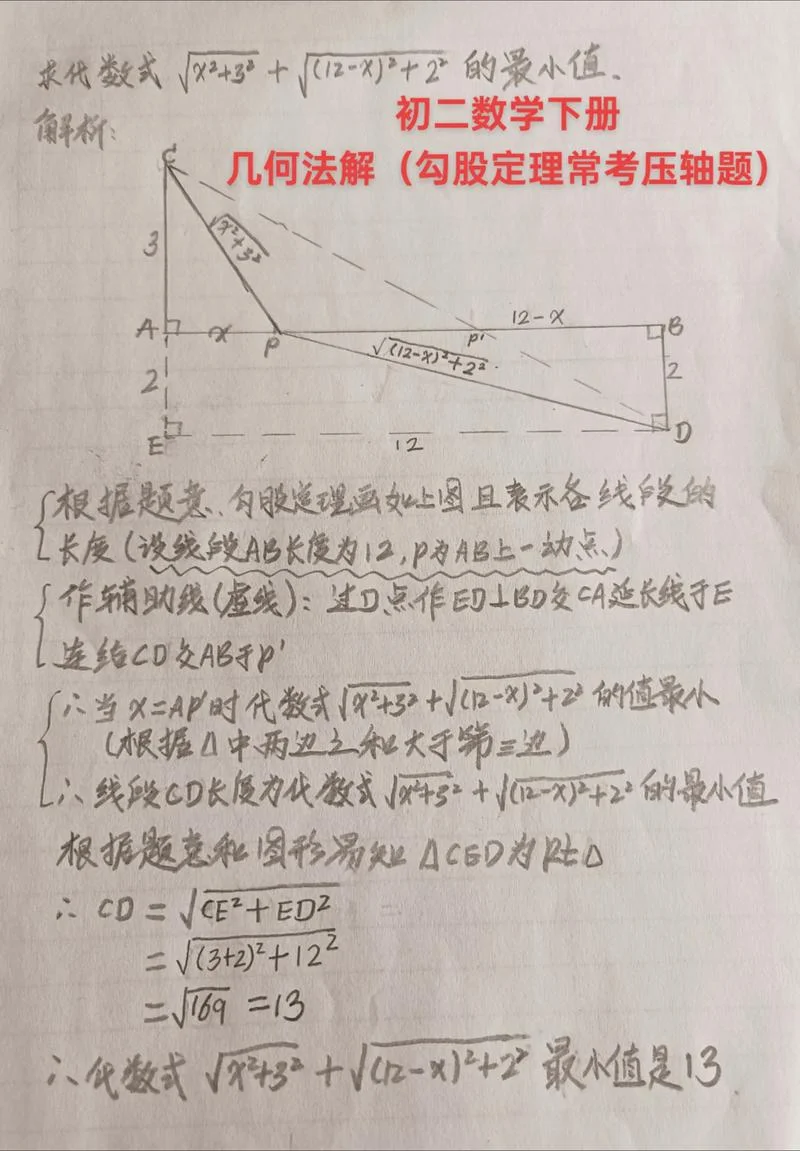 求代数式 √(x²+3²) + √((12-x)²+2²) 的最小值.
解析:
初二数学下册
几何法解（勾股定理常考压轴题）
C
3
√(x²+3²)
A
x
P
P'
12-x
B
√((12-x)²+2²)
2
2
E
12
D
根据题意、勾股定理画如上图且表示各线段的
长度(设线段AB长度为12,P为AB上一动点)
作辅助线(虚线): 过D点作ED⊥BD交CA延长线于E
连结CD交AB于P'
∴当x=AP'时代数式√(x²+3²)+√((12-x)²+2²)的值最小
(根据△中两边之和大于第三边)
∴线段CD长度为代数式√(x²+3²)+√((12-x)²+2²)的最小值
根据题意和图形易知△CED为Rt△
∴ CD = √(CE²+ED²)
= √((3+2)²+12²)
= √169 = 13
∴代数式 √(x²+3²) + √((12-x)²+2²) 最小值是13